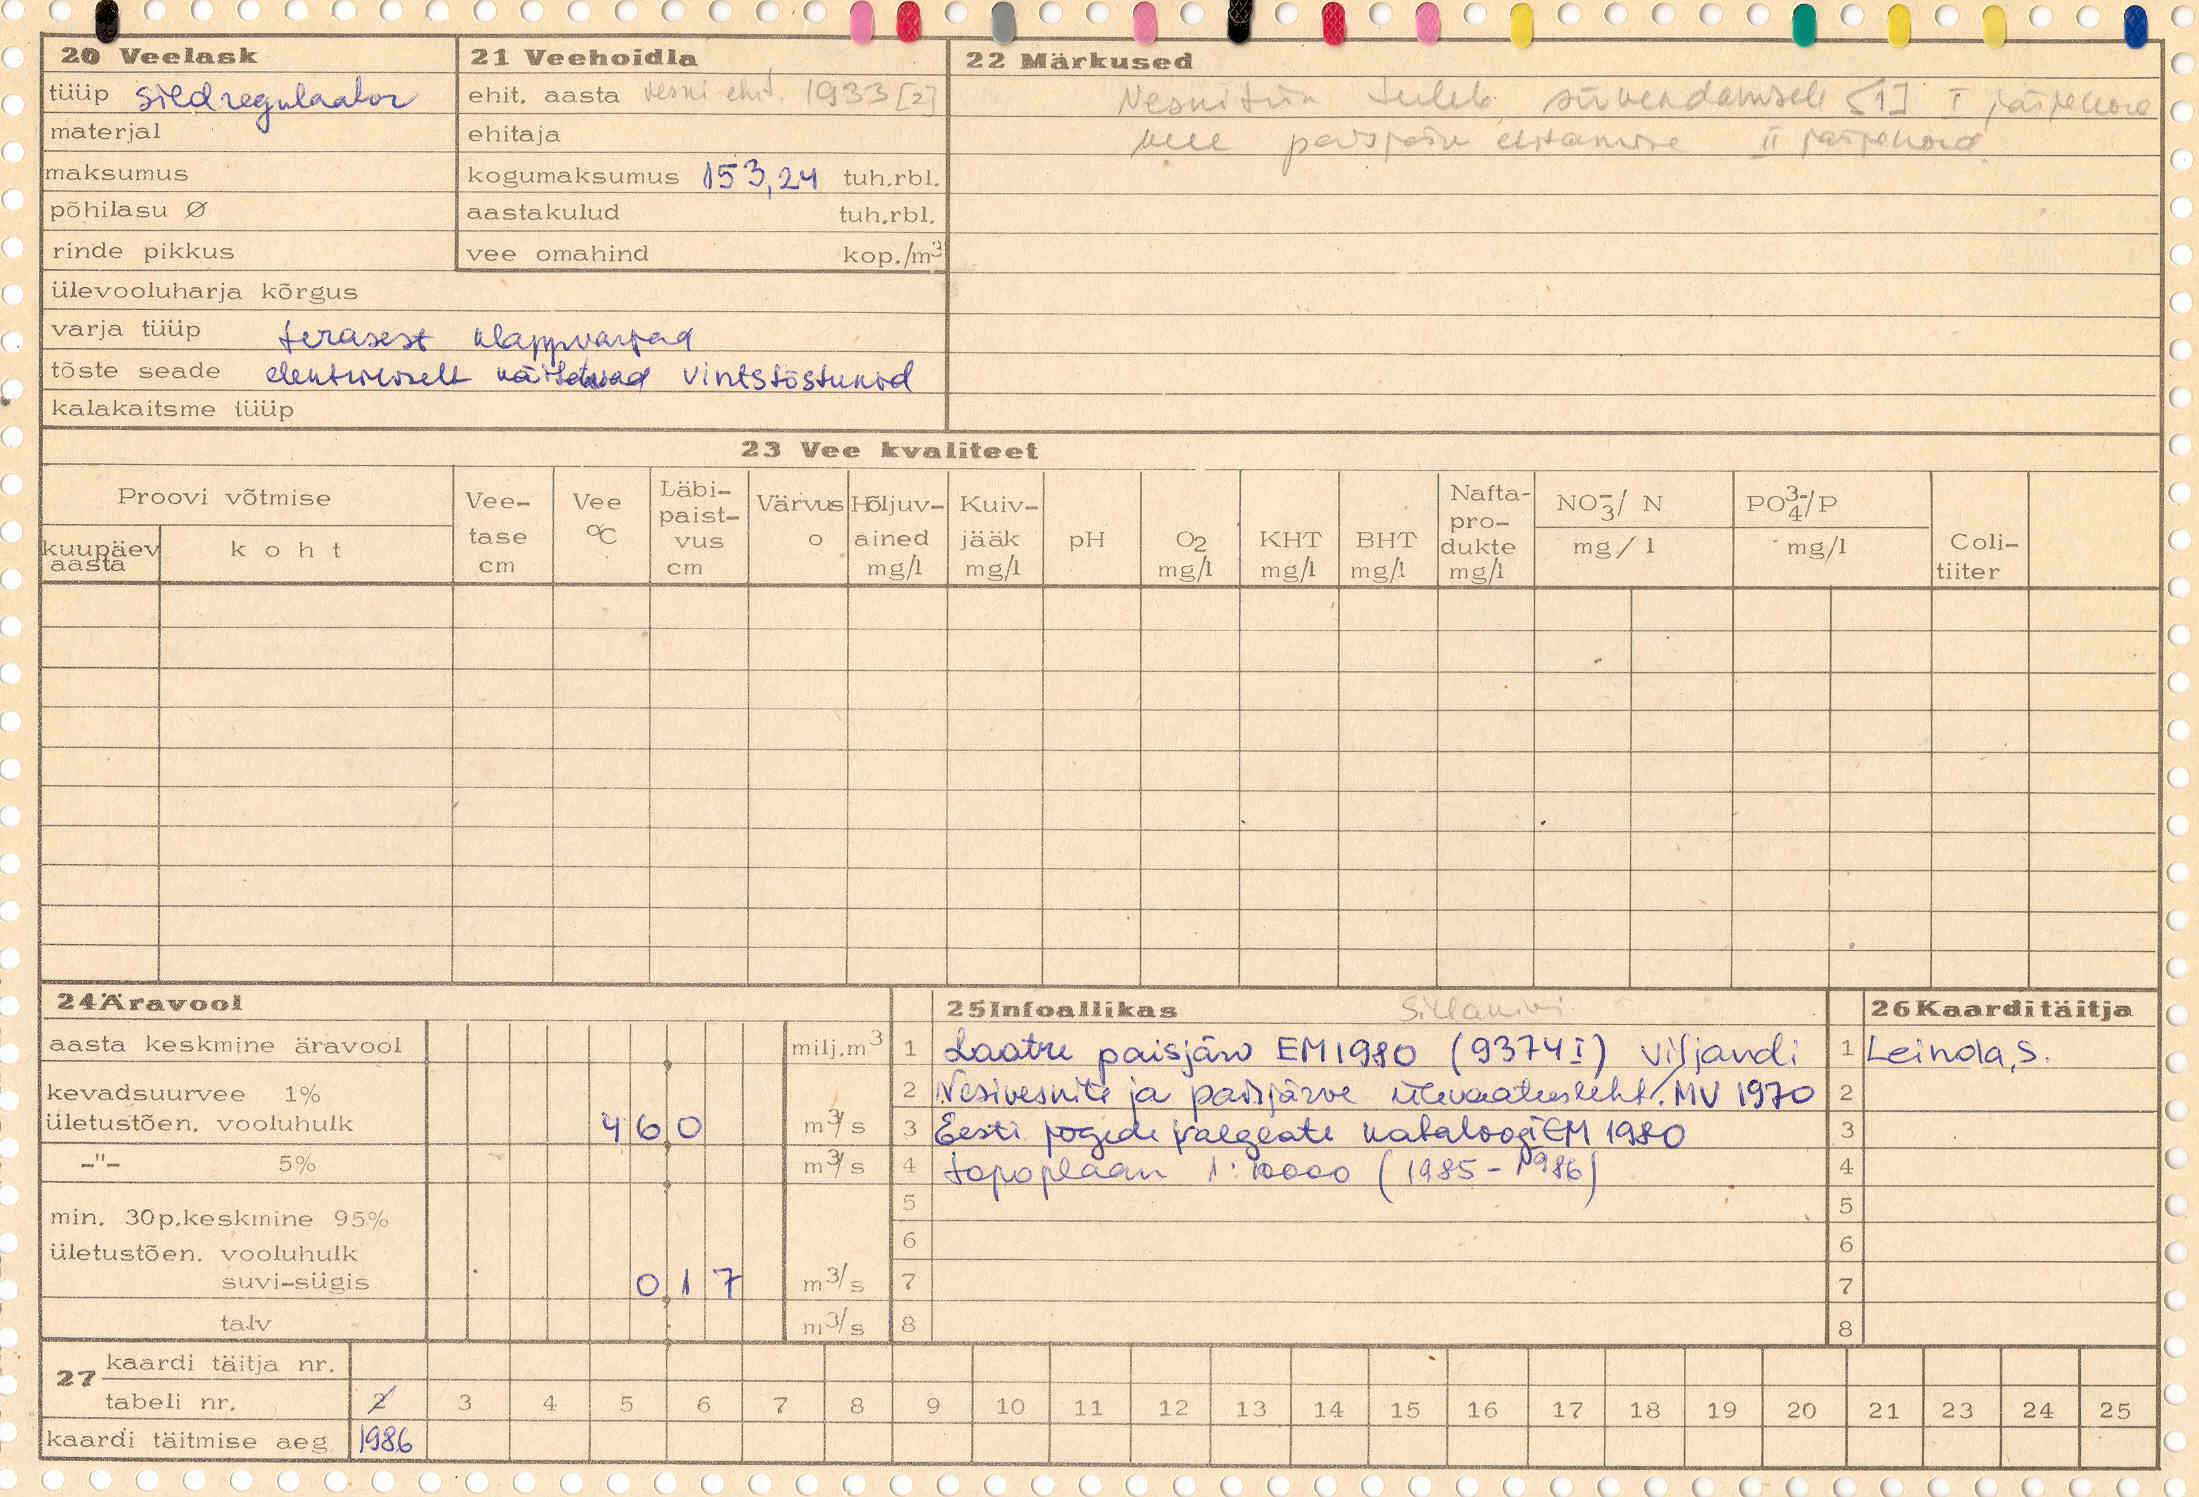 20 Veelask
tüüp sildregulaator
materjal
maksumus
põhilasu Ø
rinde pikkus
ülevooluharja kõrgus
varja tüüp terasest klappvarjad
tõste seade elektriliselt käitatavad vintstõstukid
kalakaitsme tüüp
21 Veehoidla
ehit. aasta veski ehit. 1933 [2]
ehitaja
kogumaksumus 153,24 tuh.rbl.
aastakulud tuh.rbl.
vee omahind kop./m³
22 Märkused
Veskitiik tuleb süvendamisele [1] I järjekord
paisjärve ehitamine II järjekord
23 Vee kvaliteet
Proovi võtmise
kuupäev aasta
koht
Vee-tase cm
Vee °C
Läbi-paist-vus cm
Värvus o
Hõljuv-ained mg/l
Kuiv-jääk mg/l
pH
O2 mg/l
KHT mg/l
BHT mg/l
Nafta-pro-dukte mg/l
NO₃⁻/ N mg/l
PO₄³⁻/P mg/l
Coli-tiiter
24 Äravool
aasta keskmine äravool milj.m³
kevadsuurvee 1%
ületustõen. vooluhulk 460 m³/s
-"- 5% m³/s
min. 30p.keskmine 95%
ületustõen. vooluhulk
suvi-sügis 017 m³/s
talv m³/s
25 Infoallikas
1 Laatre paisjärv EM 1980 (9374 I) Viljandi
2 Vesiveskite ja paisjärve ülevaatusleht. MV 1970
3 Eesti jõgede valgate kataloog EM 1980
4 topoplaan 1:10000 (1985-1986)
5
6
7
8
26 Kaarditäitja
1 Leinola, S.
2
3
4
5
6
7
8
27 kaardi täitja nr.
tabeli nr. 2 3 4 5 6 7 8 9 10 11 12 13 14 15 16 17 18 19 20 21 23 24 25
kaardi täitmise aeg 1986